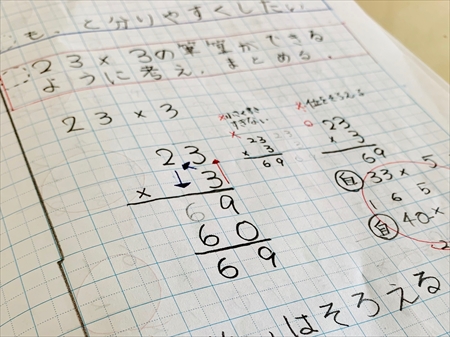 と分りやすくしたい
23×3の筆算ができる
ように考え、まとめる。
23×3
23
× 3
69
60
69
23
× 3
69
×位をそろえる
23
× 3
69
自 33× 5
1 6 5
自 40×
はそろえる